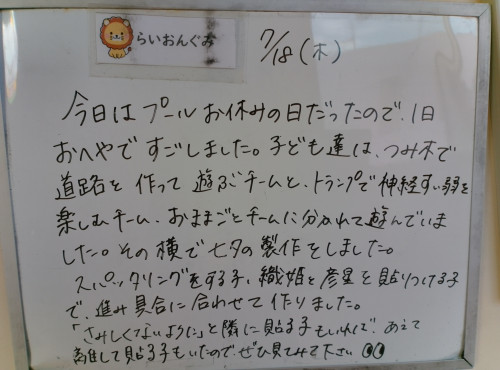 らいおんぐみ
7/18(木)
今日はプールお休みの日だったので、1日
おへやですごしました。子ども達は、つみ木で
道路を作って遊ぶチームと、トランプで神経すい弱を
楽しむチーム、おままごとチームに分かれて遊んでいま
した。その横で七夕の製作をしました。
スパッタリングをする子、織姫と彦星を貼りつける子
で、進み具合に合わせて作りました。
「さみしくないように」と隣に貼る子もいれば、あえて
離して貼る子もいたので、ぜひ見てみて下さい